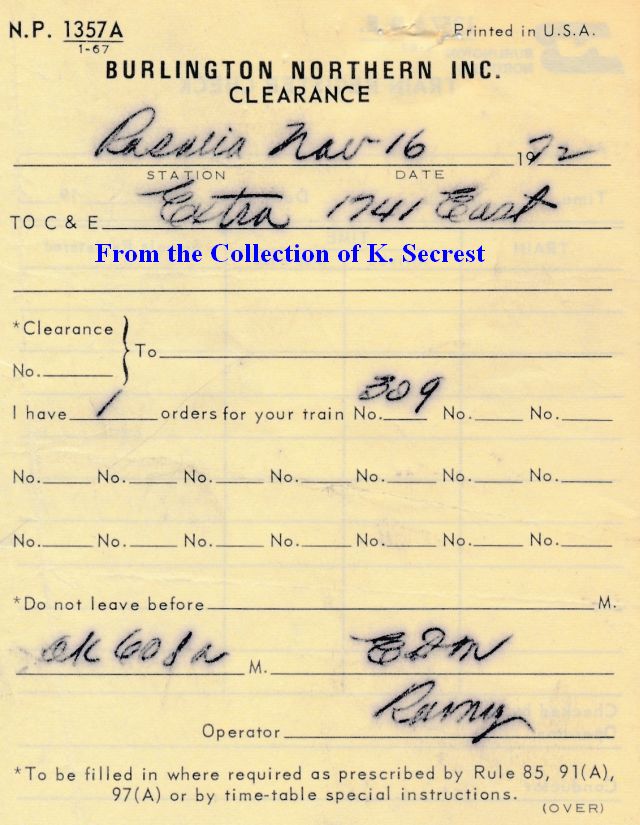 N.P. 1357A Printed in U.S.A.
1-67
BURLINGTON NORTHERN INC.
CLEARANCE
Rosalia Nov 16 1972
STATION DATE
TO C & E Extra 1741 East
From the Collection of K. Secrest
*Clearance
No. To
I have 1 orders for your train No. 309 No. No.
No. No. No. No. No. No. No.
No. No. No. No. No. No. No.
*Do not leave before M.
OK 608 a M. EDM
Operator
*To be filled in where required as prescribed by Rule 85, 91(A),
97(A) or by time-table special instructions.
(OVER)